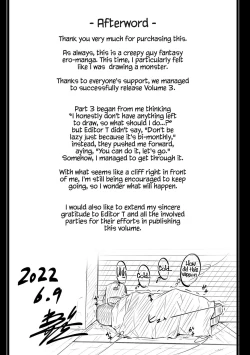 - Afterword -
Thank you very much for purchasing this.
As always, this is a creepy guy fantasy
ero-manga. This time, I particularly felt
like I was drawing a monster.
Thanks to everyone's support, we managed
to successfully release Volume 3.
Part 3 began from me thinking
"I honestly don't have anything left
to draw, so what should I do...?"
but Editor T didn't say, "Don't be
lazy just because it's bi-monthly,"
instead, they pushed me forward,
aying, "You can do it, let's go."
Somehow, I managed to get through it.
With what seems like a cliff right in front
of me, I'm still being encouraged to keep
going, so I wonder what will happen.
I would also like to extend my sincere
gratitude to Editor T and all the involved
parties for their efforts in publishing
this volume.
2022
6.9
Cold...